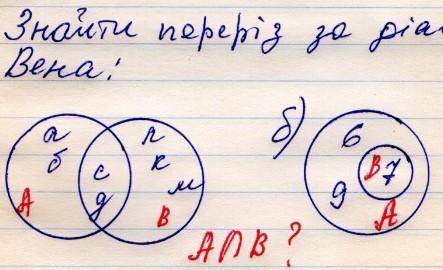 Знайти переріз за діа
Вена:
а л
б с к
д м
А В
б) 6
В 7
9
А
А∩В ?